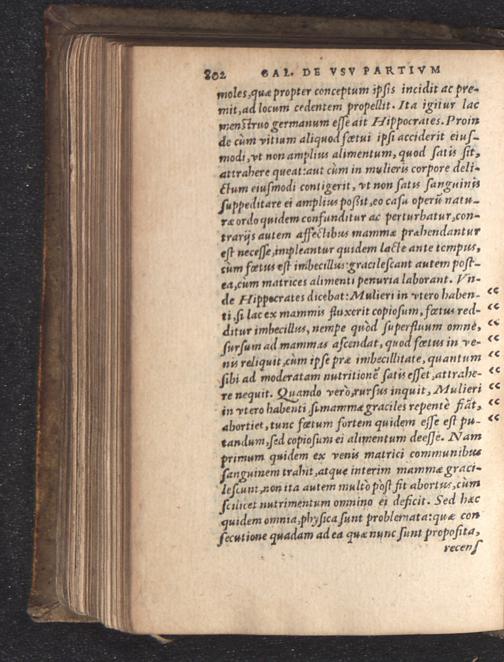 802 GAL. DE VSV PARTIVM
moles, quæ propter conceptum ipsis incidit ac pre-
mit, ad locum cedentem propellit. Ita igitur lac
menstruo germanum esse ait Hippocrates. Proin
de cùm vitium aliquod fœtui ipsi acciderit eius-
modi, vt non amplius alimentum, quod satis sit,
attrahere queat: aut cùm in mulieris corpore deli-
ctum eiusmodi contigerit, vt non satis sanguinis
suppeditare ei amplius poßit, eo casu operũ natu-
ræ ordo quidem confunditur ac perturbatur, con-
trarijs autem affectibus mammæ præhendantur
est necesse, impleantur quidem lacte ante tempus,
cùm fœtus est imbecillus: gracilescant autem post-
ea, cùm matrices alimenti penuria laborant. Vn-
de Hippocrates dicebat: Mulieri in vtero haben- “
ti, si lac ex mammis fluxerit copiosum, fœtus red- “
ditur imbecillus, nempe quòd superfluum omne, “
sursum ad mammas ascendat, quod fœtus in ve- “
nis reliquit, cùm ipse præ imbecillitate, quantum “
sibi ad moderatam nutritionẽ satis esset, attrahe- “
re nequit. Quando verò, rursus inquit, Mulieri “
in vtero habenti si mammæ graciles repentè fiãt, “
abortiet, tunc fœtum fortem quidem esse est pu- “
tandum, sed copiosum ei alimentum deesse. Nam
primum quidem ex venis matrici communibus
sanguinem trahit, atque interim mammæ graci-
lescunt, non ita autem multò pòst fit abortus, cùm
scilicet nutrimentum omnino ei deficit. Sed hæc
quidem omnia, physica sunt problemata: quæ con
secutione quadam ad ea quæ nunc sunt proposita,
recens